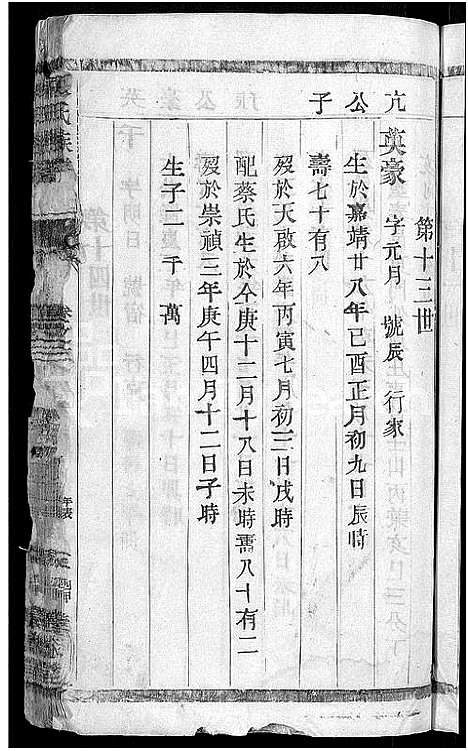 第十三世
亢公子
英豪 字元月 號辰 行家
生於嘉靖廿八年己酉正月初九日辰時
壽七十有八
歿於天啟六年丙寅七月初三日戌時
配蔡氏生於仝庚十二月十八日未時壽八十有二
歿於崇禎三年庚午四月十二日子時
生子二 千 萬
氏族